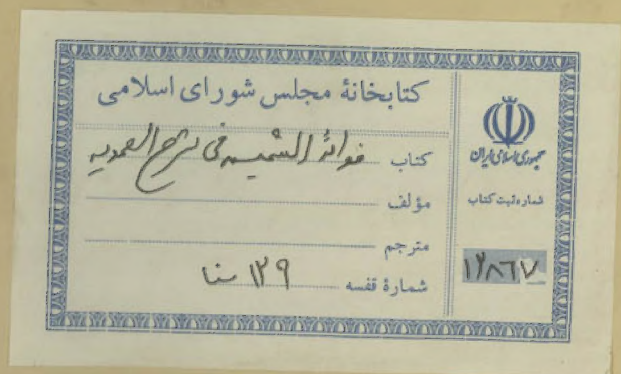 کتابخانهٔ مجلس شورای اسلامی
کتاب فوائد الشمسیه فی شرح الصمدیه
مؤلف
مترجم
شمارهٔ قفسه ۱۲۹ سنا
جمهوری اسلامی ایران
شماره ثبت کتاب
۱۲۸۶۷